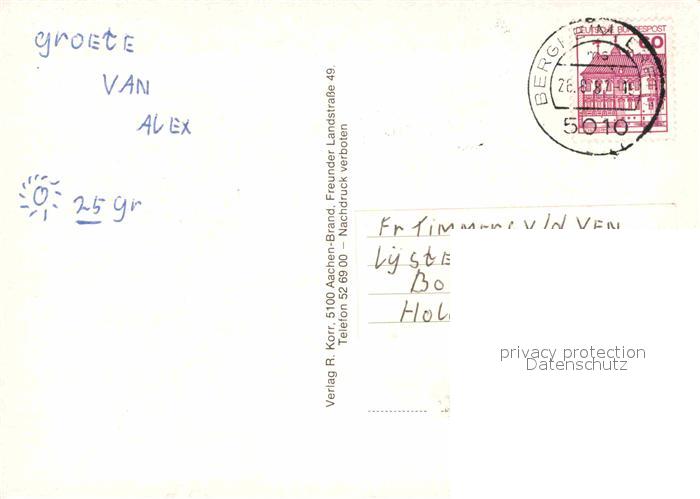 groete
VAN
ALEX
25 gr
Verlag R. Korr, 5100 Aachen-Brand, Freunder Landstraße 49.
Telefon 52 69 00 – Nachdruck verboten
DEUTSCHE BUNDESPOST
60
5010
Fr Timmers v/d VEN
privacy protection
Datenschutz